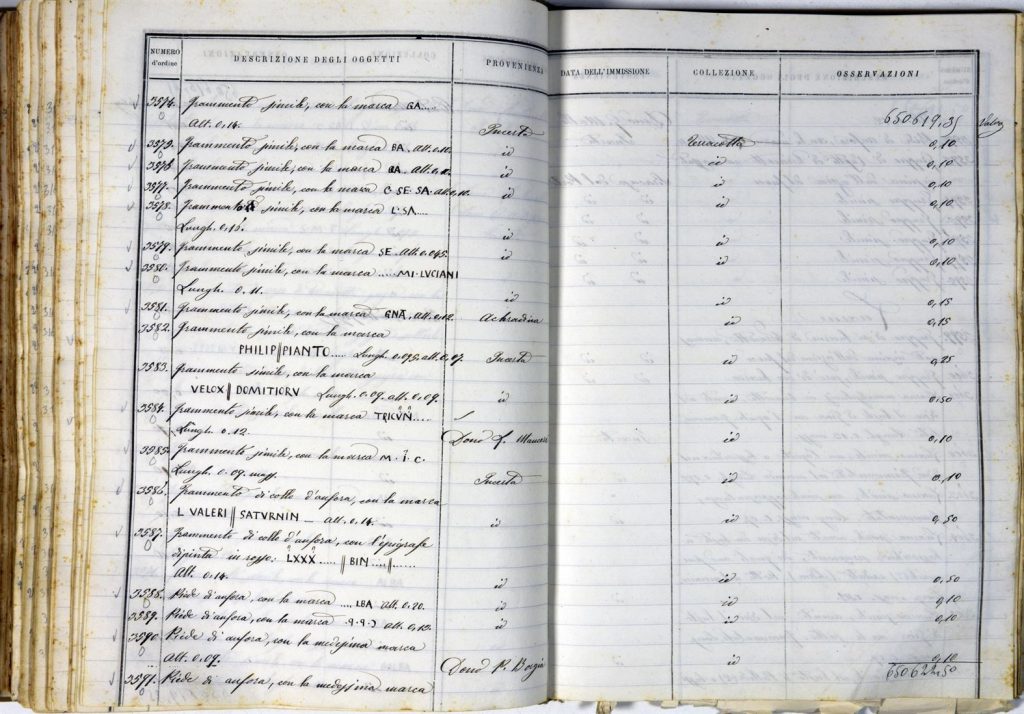 NUMERO d'ordine DESCRIZIONE DEGLI OGGETTI PROVENIENZA DATA DELL'IMMISSIONE COLLEZIONE OSSERVAZIONI
650619,35
3574. Frammento simile, con la marca GA....
Alt. 0,14. Incerta Terracotta 0,10
3575. Frammento simile, con la marca BA. Alt. 0,10. id id 0,10
3576. Frammento simile, con la marca BA. Alt. 0,10. id id 0,10
3577. Frammento simile, con la marca C·SE·SA. Alt. 0,10. id id 0,10
3578. Frammento simile, con la marca L·SA....
Lungh. 0,15. id 0,10
3579. Frammento simile, con la marca SE. Alt. 0,045. id id 0,10
3580. Frammento simile, con la marca .....MI·LUCIANI
Lungh. 0,11. id id 0,15
3581. Frammento simile, con la marca GNA. Alt. 0,12. Achradina id 0,15
3582. Frammento simile, con la marca
PHILIP||PIANTO.... Lungh. 0,095, alt. 0,07. Incerta id 0,25
3583. Frammento simile, con la marca
VELOX || DOMITIORV Lungh. 0,09. alt. 0,09. id id 0,50
3584. Frammento simile, con la marca TRICVN.....
Lungh. 0,12. Dono id 0,10
3585. Frammento simile, con la marca M. I. C.
Lungh. 0,09. Incerta id 0,10
3586. Frammento di collo d'anfora, con la marca
L VALERI || SATVRNIN _ Alt. 0,14. id id 0,50
3587. Frammento di collo d'anfora, con l'epigrafe
dipinta in rosso: LXXX ..... || BIN ....||......
Alt. 0,14. id id 0,50
3588. Piede d'anfora, con la marca ....LBA Alt. 0,20. id id 0,10
3589. Piede d'anfora, con la marca Alt. 0,15. id id 0,10
3590. Piede di anfora, con la medesima marca
Alt. 0,09. Dono id 0,10
3591. Piede di anfora, con la medesima marca
650622,50